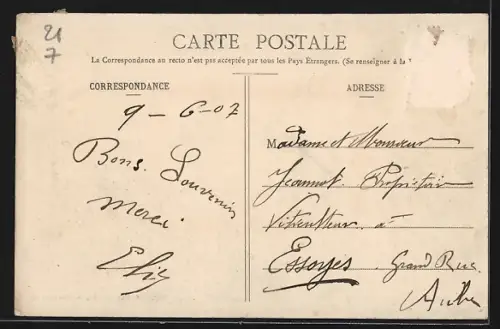 21
7
CARTE POSTALE
La Correspondance au recto n'est pas acceptée par tous les Pays Étrangers. (Se renseigner à la
CORRESPONDANCE
ADRESSE
9 - 6 - 07
Bons Souvenirs
merci
Madame et Monsieur
Jeannot Propriétaire
Viticulteur à
Essoyes Grand Rue
Aube